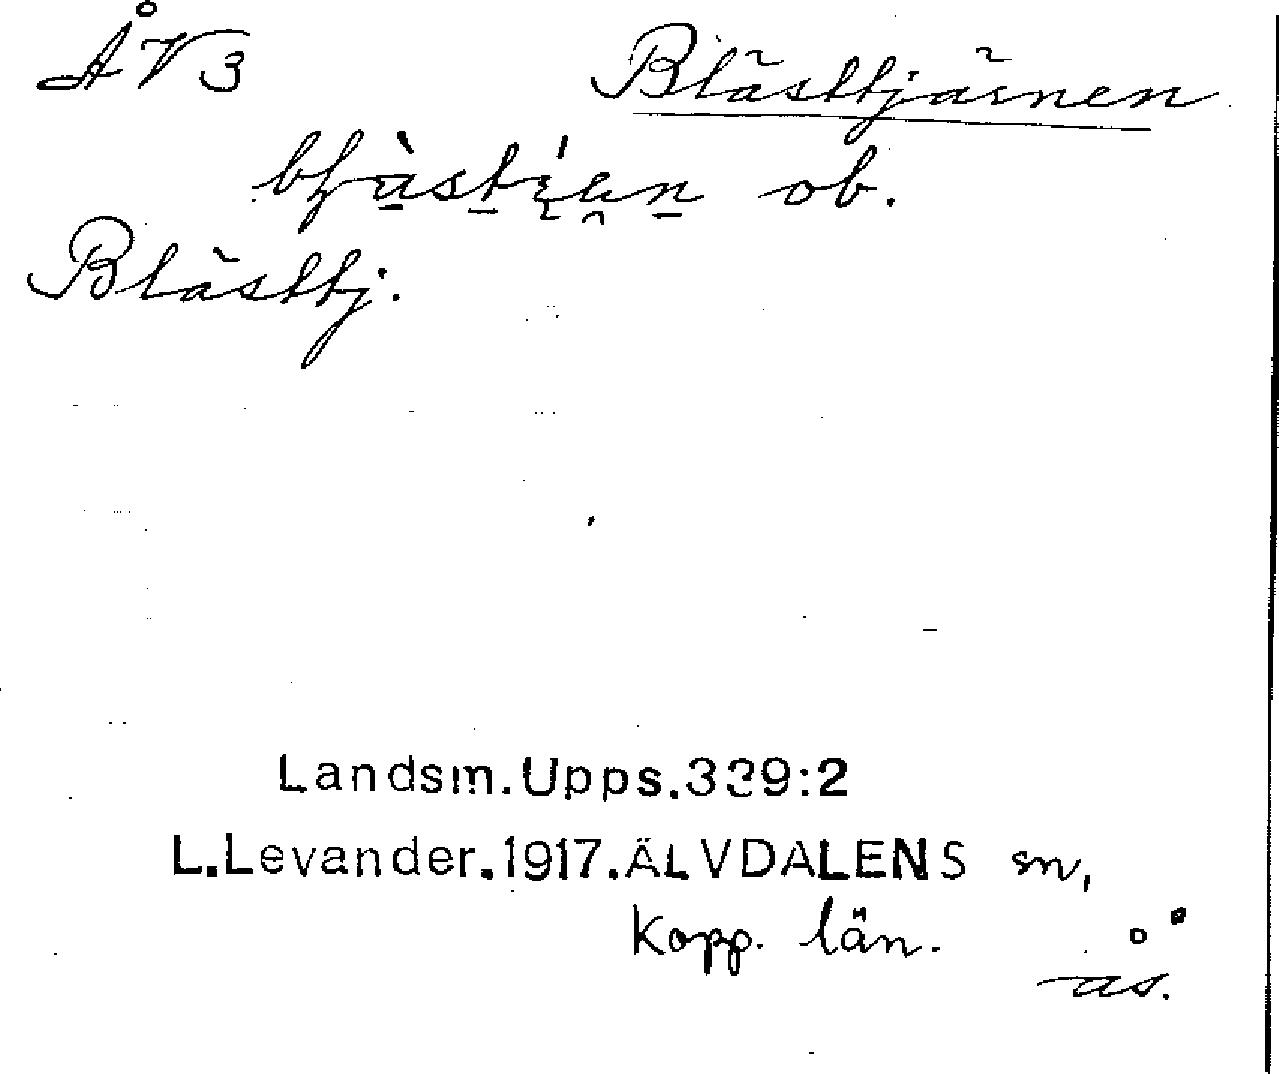 ÅV3 Blästtjärnen
ob.
Blästtj.
Landsm.Upps.339:2
L.Levander.1917.ÄLVDALENS sn,
Kopp. län.
ås.